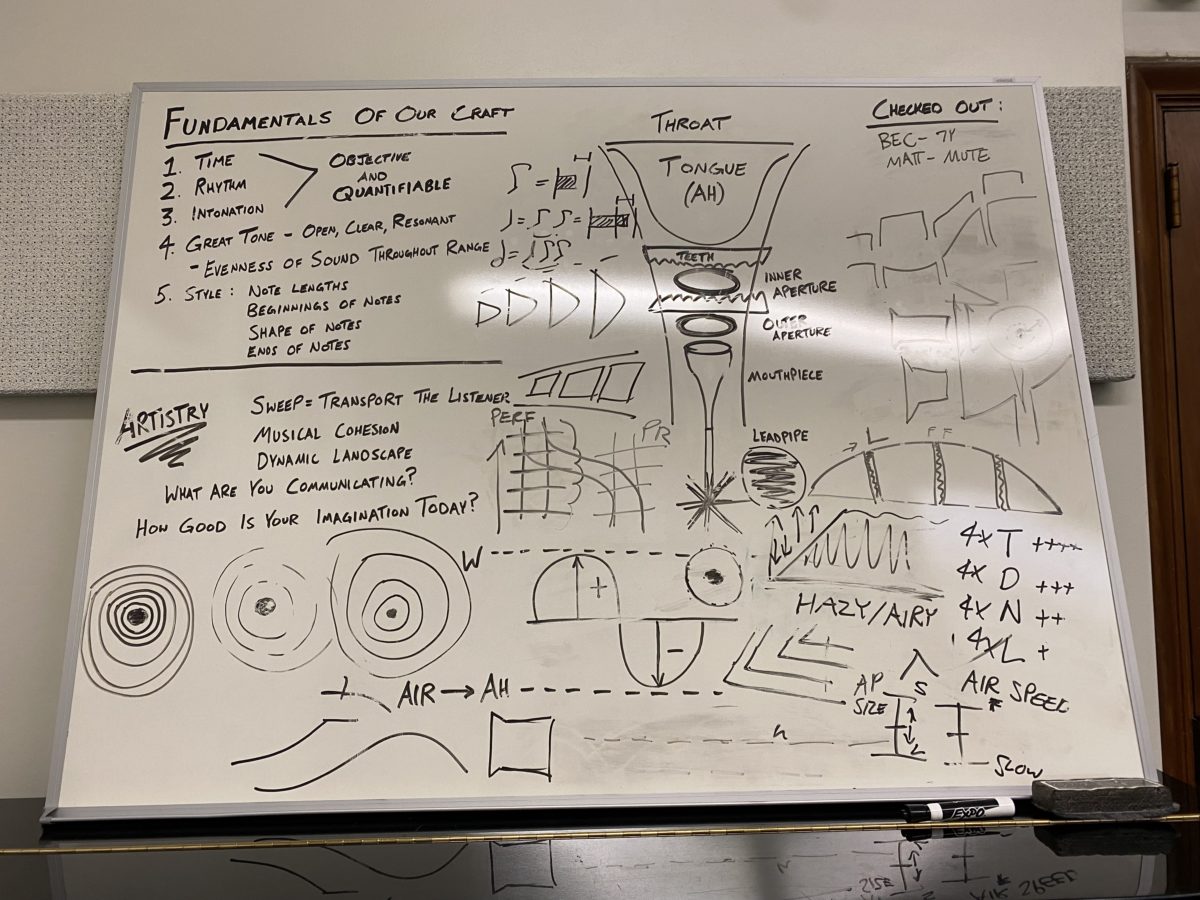 FUNDAMENTALS OF OUR CRAFT
1. TIME
2. RHYTHM
3. INTONATION
OBJECTIVE
AND
QUANTIFIABLE
4. GREAT TONE - OPEN, CLEAR, RESONANT
- EVENNESS OF SOUND THROUGHOUT RANGE
5. STYLE: NOTE LENGTHS
BEGINNINGS OF NOTES
SHAPE OF NOTES
ENDS OF NOTES
ARTISTRY
SWEEP = TRANSPORT THE LISTENER
MUSICAL COHESION
DYNAMIC LANDSCAPE
WHAT ARE YOU COMMUNICATING?
HOW GOOD IS YOUR IMAGINATION TODAY?
THROAT
TONGUE
(AH)
TEETH
INNER
APERTURE
OUTER
APERTURE
MOUTHPIECE
LEADPIPE
CHECKED OUT:
BEC - 7Y
MATT - MUTE
PERF
PR
L
FF
W
+
-
HAZY/AIRY
4x T ++++
4x D +++
4x N ++
4x L +
AIR → AH
AP
SIZE
S
L
AIR SPEED
F
SLOW
EXPO